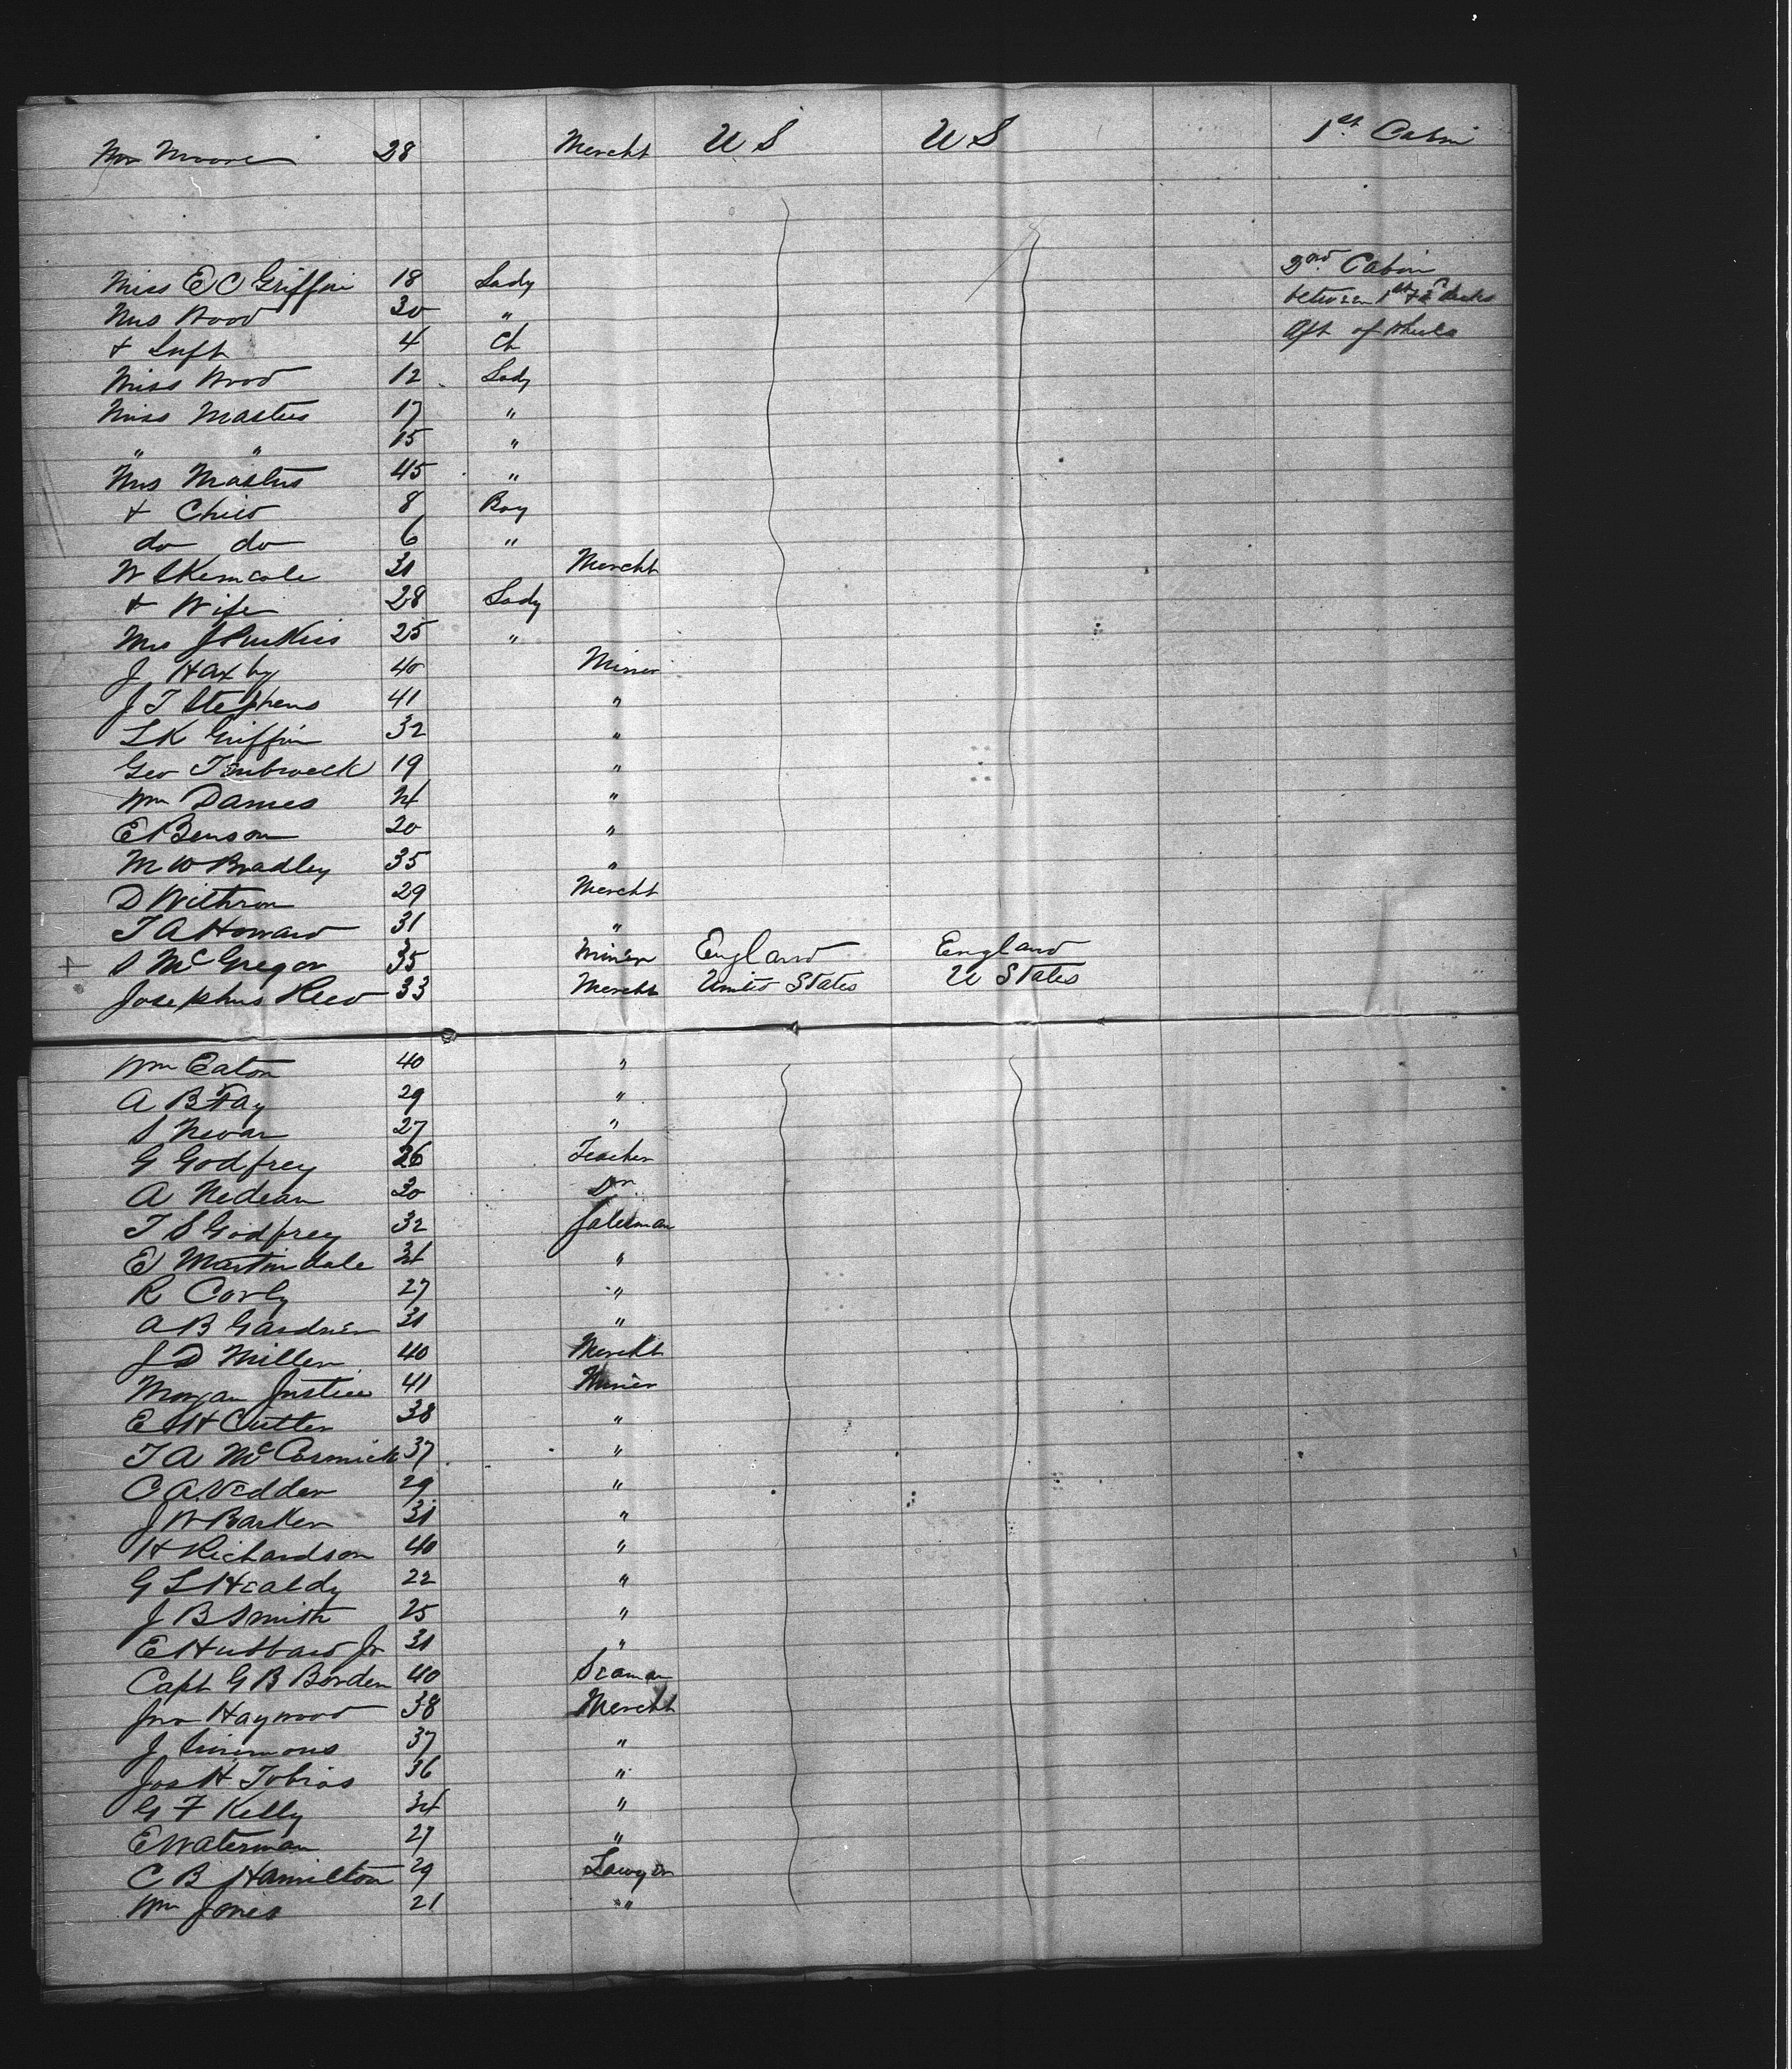 Wm Moore 28 Mercht U S U S 1st Cabin
Miss E C Griffin 18 Lady 2nd Cabin
Mrs Wood 30 " between 1st & 2d decks
& Inft 4 Ch Aft of Wheels
Miss Wood 12 Lady
Miss Masters 17 "
" " 15 "
Mrs Masters 45 "
& Child 8 Boy
do do 6 "
W 31 Mercht
& Wife 28 Lady
Mrs J Perkins 25 "
J Haxby 40 Miner
J T Stephens 41 "
L K Griffin 32 "
Geo 19 "
Wm Dames "
E Benson 20 "
M W Bradley 35 "
D Withrow 29 Mercht
T A Howard 31 "
+ S McGregor 35 Miner England England
Josephus Reed 33 Mercht United States U States
Wm Eaton 40 "
A B Fay 29 "
S 27 "
G Godfrey 26 Teacher
A Nedeau 30 Dr
T S Godfrey 32 Salesman
E Martindale "
R Corly 27 "
A B Gardner 31 "
J D Miller 40 Mercht
Morgan Justice 41 Miner
E H Cutter 38 "
T A McCormick 37 "
C A Vedder 29 "
J W Barker 31 "
H Richardson 40 "
G L Healdy 22 "
J B Smith 25 "
E Hubbard Jr 31 "
Capt G B Borden 40 Seaman
Jno Haywood 38 Mercht
J Simmons 37 "
Jos H Tobias 36 "
G F Kelly "
E Waterman 27 "
C B Hamilton 29 Lawyer
Wm Jones 21 "